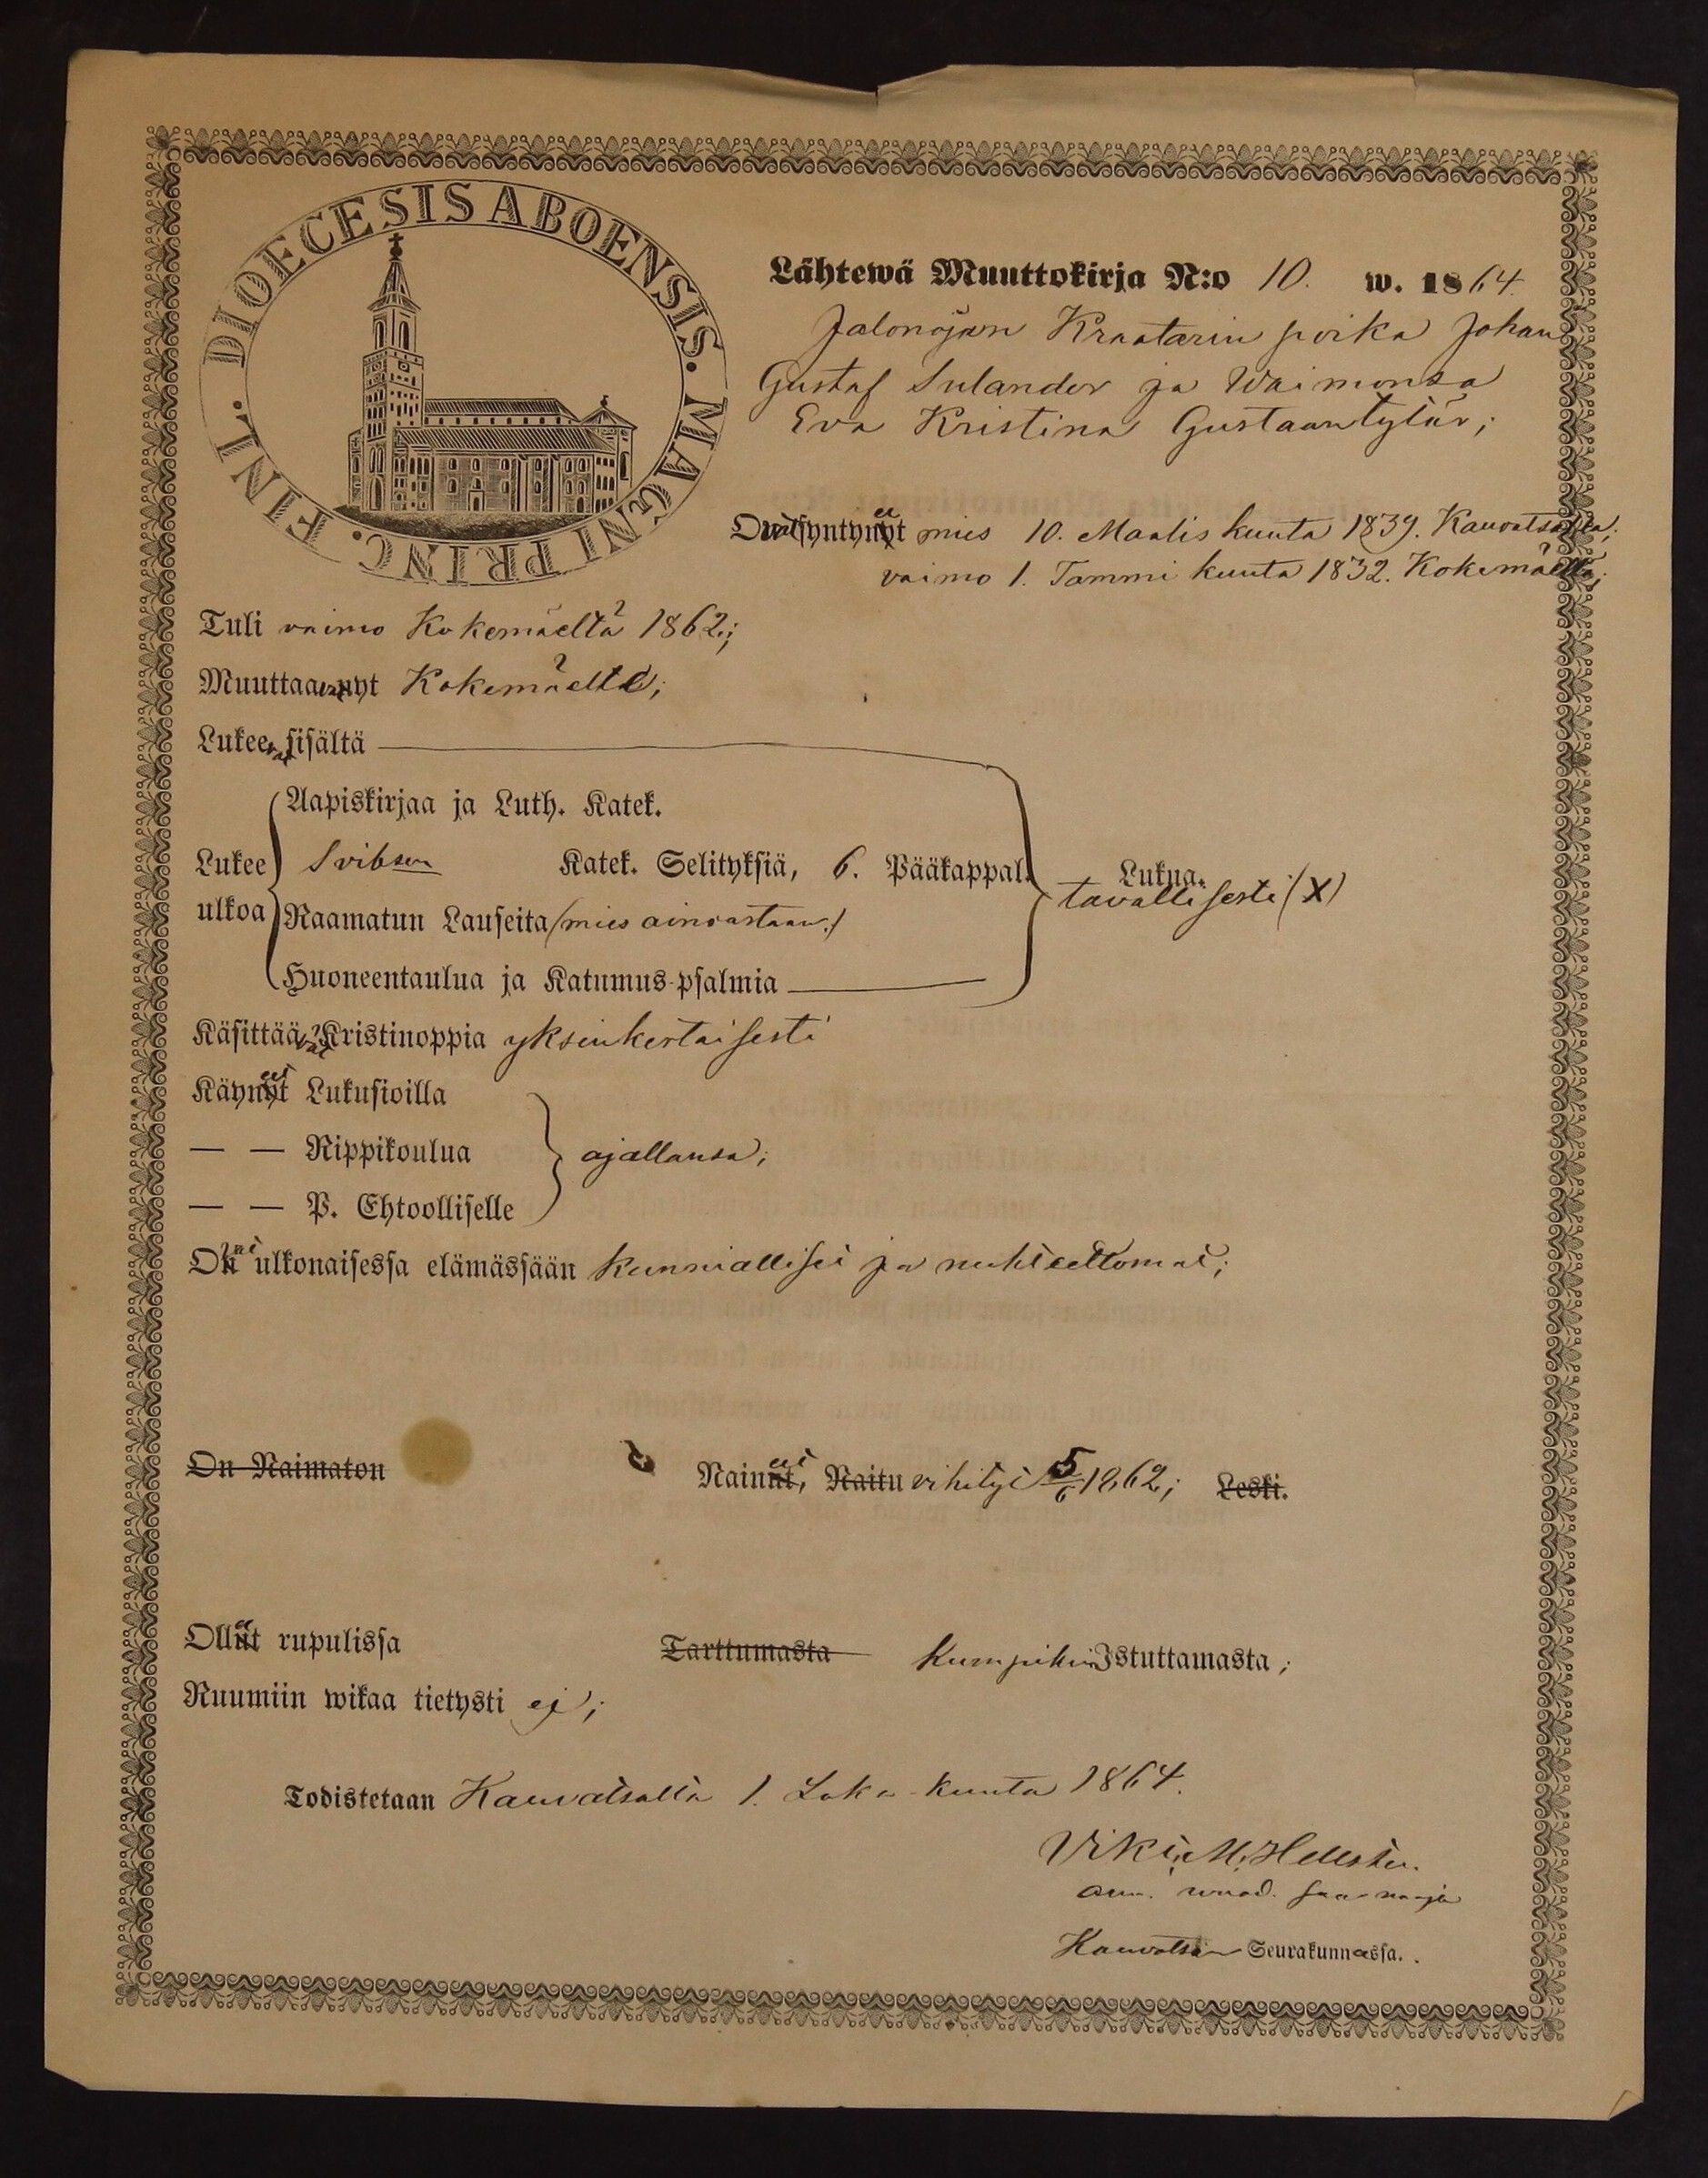 DIOECESIS ABOENSIS. MAGNI PRINC. FINL.
Lähtewä Muuttokirja N:o 10. w. 1864.
Jalonojan Kraatarin poika Johan
Gustaf Sulander ja Waimonsa
Eva Kristina Gustaantytär;
Ovat syntyneet mies 10. Maaliskuuta 1839. Kauvatsalla;
vaimo 1. Tammikuuta 1832. Kokemäellä;
Tuli vaimo Kokemäeltä 1862;
Muuttaavat nyt Kokemäelle;
Lukeevat sisältä
Aapiskirjaa ja Luth. Katek.
Lukee ulkoa Svibson Katek. Selityksiä, 6. Pääkappal. Lukua.
tavallisesti (X)
Raamatun Lauseita (mies ainoastaan.)
Huoneentaulua ja Katumus-psalmia
Käsittäävät Kristinoppia yksinkertaisesti
Käyneet Lukusioilla
— — Rippikoulua ajallansa;
— — P. Ehtoolliselle
Ovat ulkonaisessa elämässään kunnialliset ja nuhteettomat;
On Naimaton Naineet, Naitu vihityt 5/6 1862; Leski.
Olleet rupulissa Tarttumasta kumpikin Istuttamasta;
Ruumiin wikaa tietysti ej;
Todistetaan Kauvatsalla 1. Loka-kuuta 1864.
saarnaaja
Kauvatsan Seurakunnassa.